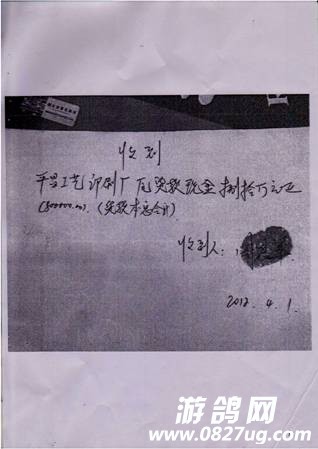 收到
平昌工艺印刷厂奖款现金捌拾万元正
(800000.00).(奖款本总合计)
收到人:
2012.4.1.
游鸽网
www.0827ug.com